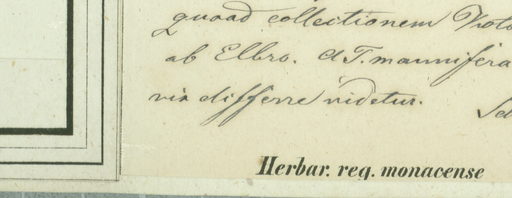 quoad collectionem
ab Elbro. A T. mannifera
vix differre videtur.
Herbar. reg. monacense